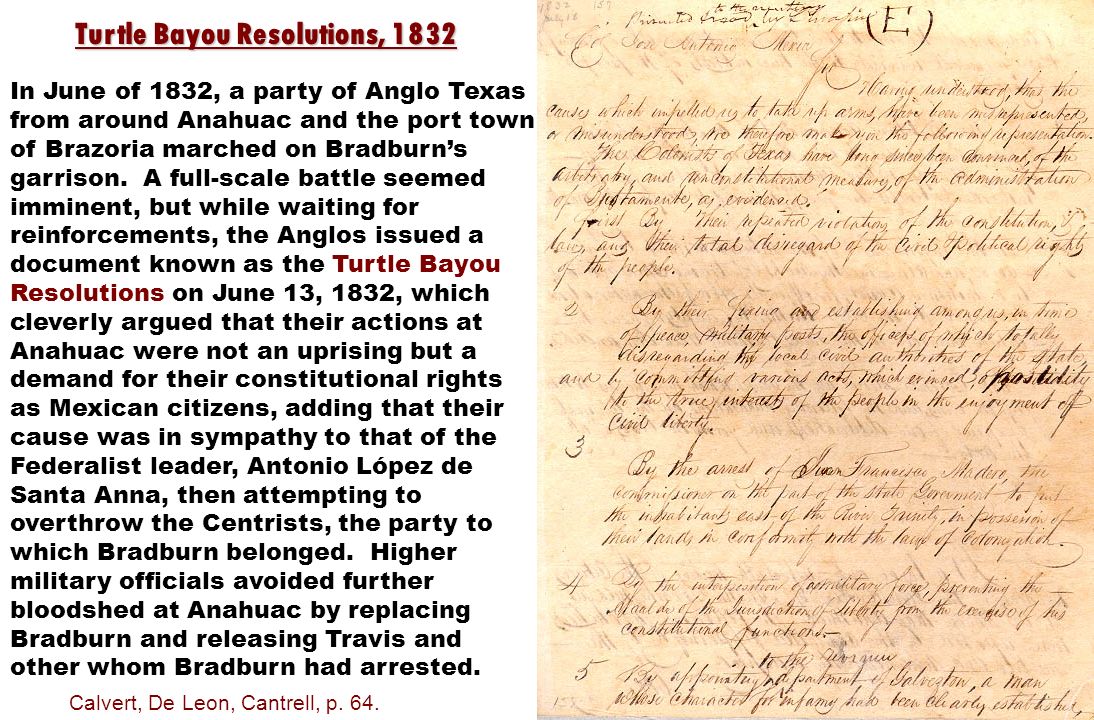 Turtle Bayou Resolutions, 1832
In June of 1832, a party of Anglo Texas
from around Anahuac and the port town
of Brazoria marched on Bradburn’s
garrison. A full-scale battle seemed
imminent, but while waiting for
reinforcements, the Anglos issued a
document known as the Turtle Bayou
Resolutions on June 13, 1832, which
cleverly argued that their actions at
Anahuac were not an uprising but a
demand for their constitutional rights
as Mexican citizens, adding that their
cause was in sympathy to that of the
Federalist leader, Antonio López de
Santa Anna, then attempting to
overthrow the Centrists, the party to
which Bradburn belonged. Higher
military officials avoided further
bloodshed at Anahuac by replacing
Bradburn and releasing Travis and
other whom Bradburn had arrested.
Calvert, De Leon, Cantrell, p. 64.
1832 157
July 18 to the meeting
(E)
Col Jose Antonio Mexia
Sir
Having understood, that the
causes which impelled us to take up arms, have been misrepresented,
or misunderstood, we therefore make you the following representation.
The Colonists of Texas have long since been convinced, of the
arbitrary, and unconstitutional measures, of the administration
of Bustamente, as evidenced.
First By their repeated violations of the constitution, &
laws, and their total disregard of the civil & political rights
of the people.
2 By their fixing and establishing among us, in time
of peace, military posts, the officers of which totally
disregarding the local civil authorities of the state
and by committing various acts, which evinced, opposition
to the true interests of the people in the enjoyment of
civil liberty.
3
By the arrest of Juan Francisco Madero, the
commissioner on the part of the state Government to put
the inhabitants east of the River Trinity, in possession of
their lands in conformity with the laws of Colonization.
4 By the interposition of a military force, preventing the
Alcalde of the Jurisdiction of Liberty from the exercise of his
constitutional functions.
5 By appointing to the
department of Galveston, a man
whose character for infamy had been clearly established,